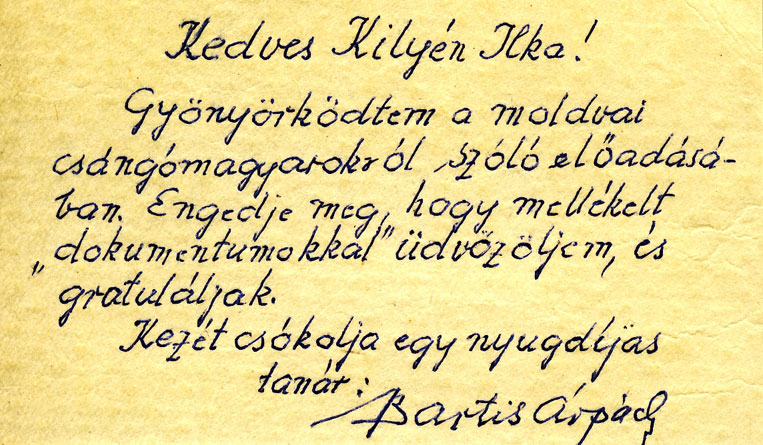 Kedves Kilyén Ilka!
Gyönyörködtem a moldvai
csángómagyarokról szóló előadásá-
ban. Engedje meg, hogy mellékelt
„dokumentumokkal" üdvözöljem, és
gratuláljak.
Kezét csókolja egy nyugdíjas
tanár:
Bartis Árpád